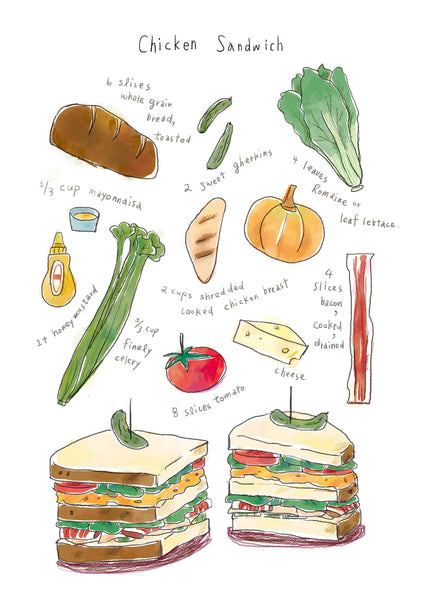 Chicken Sandwich
6 slices
whole grain
bread,
toasted
2 sweet gherkins
4 leaves
Romaine or
leaf lettace.
1/3 cup mayonnaisa
1t honeymustard
2 cups shredded
cooked chicken breast
1/3 cup
Finely
celery
4
slices
bacon,
cooked,
drained
cheese
8 slices tomato